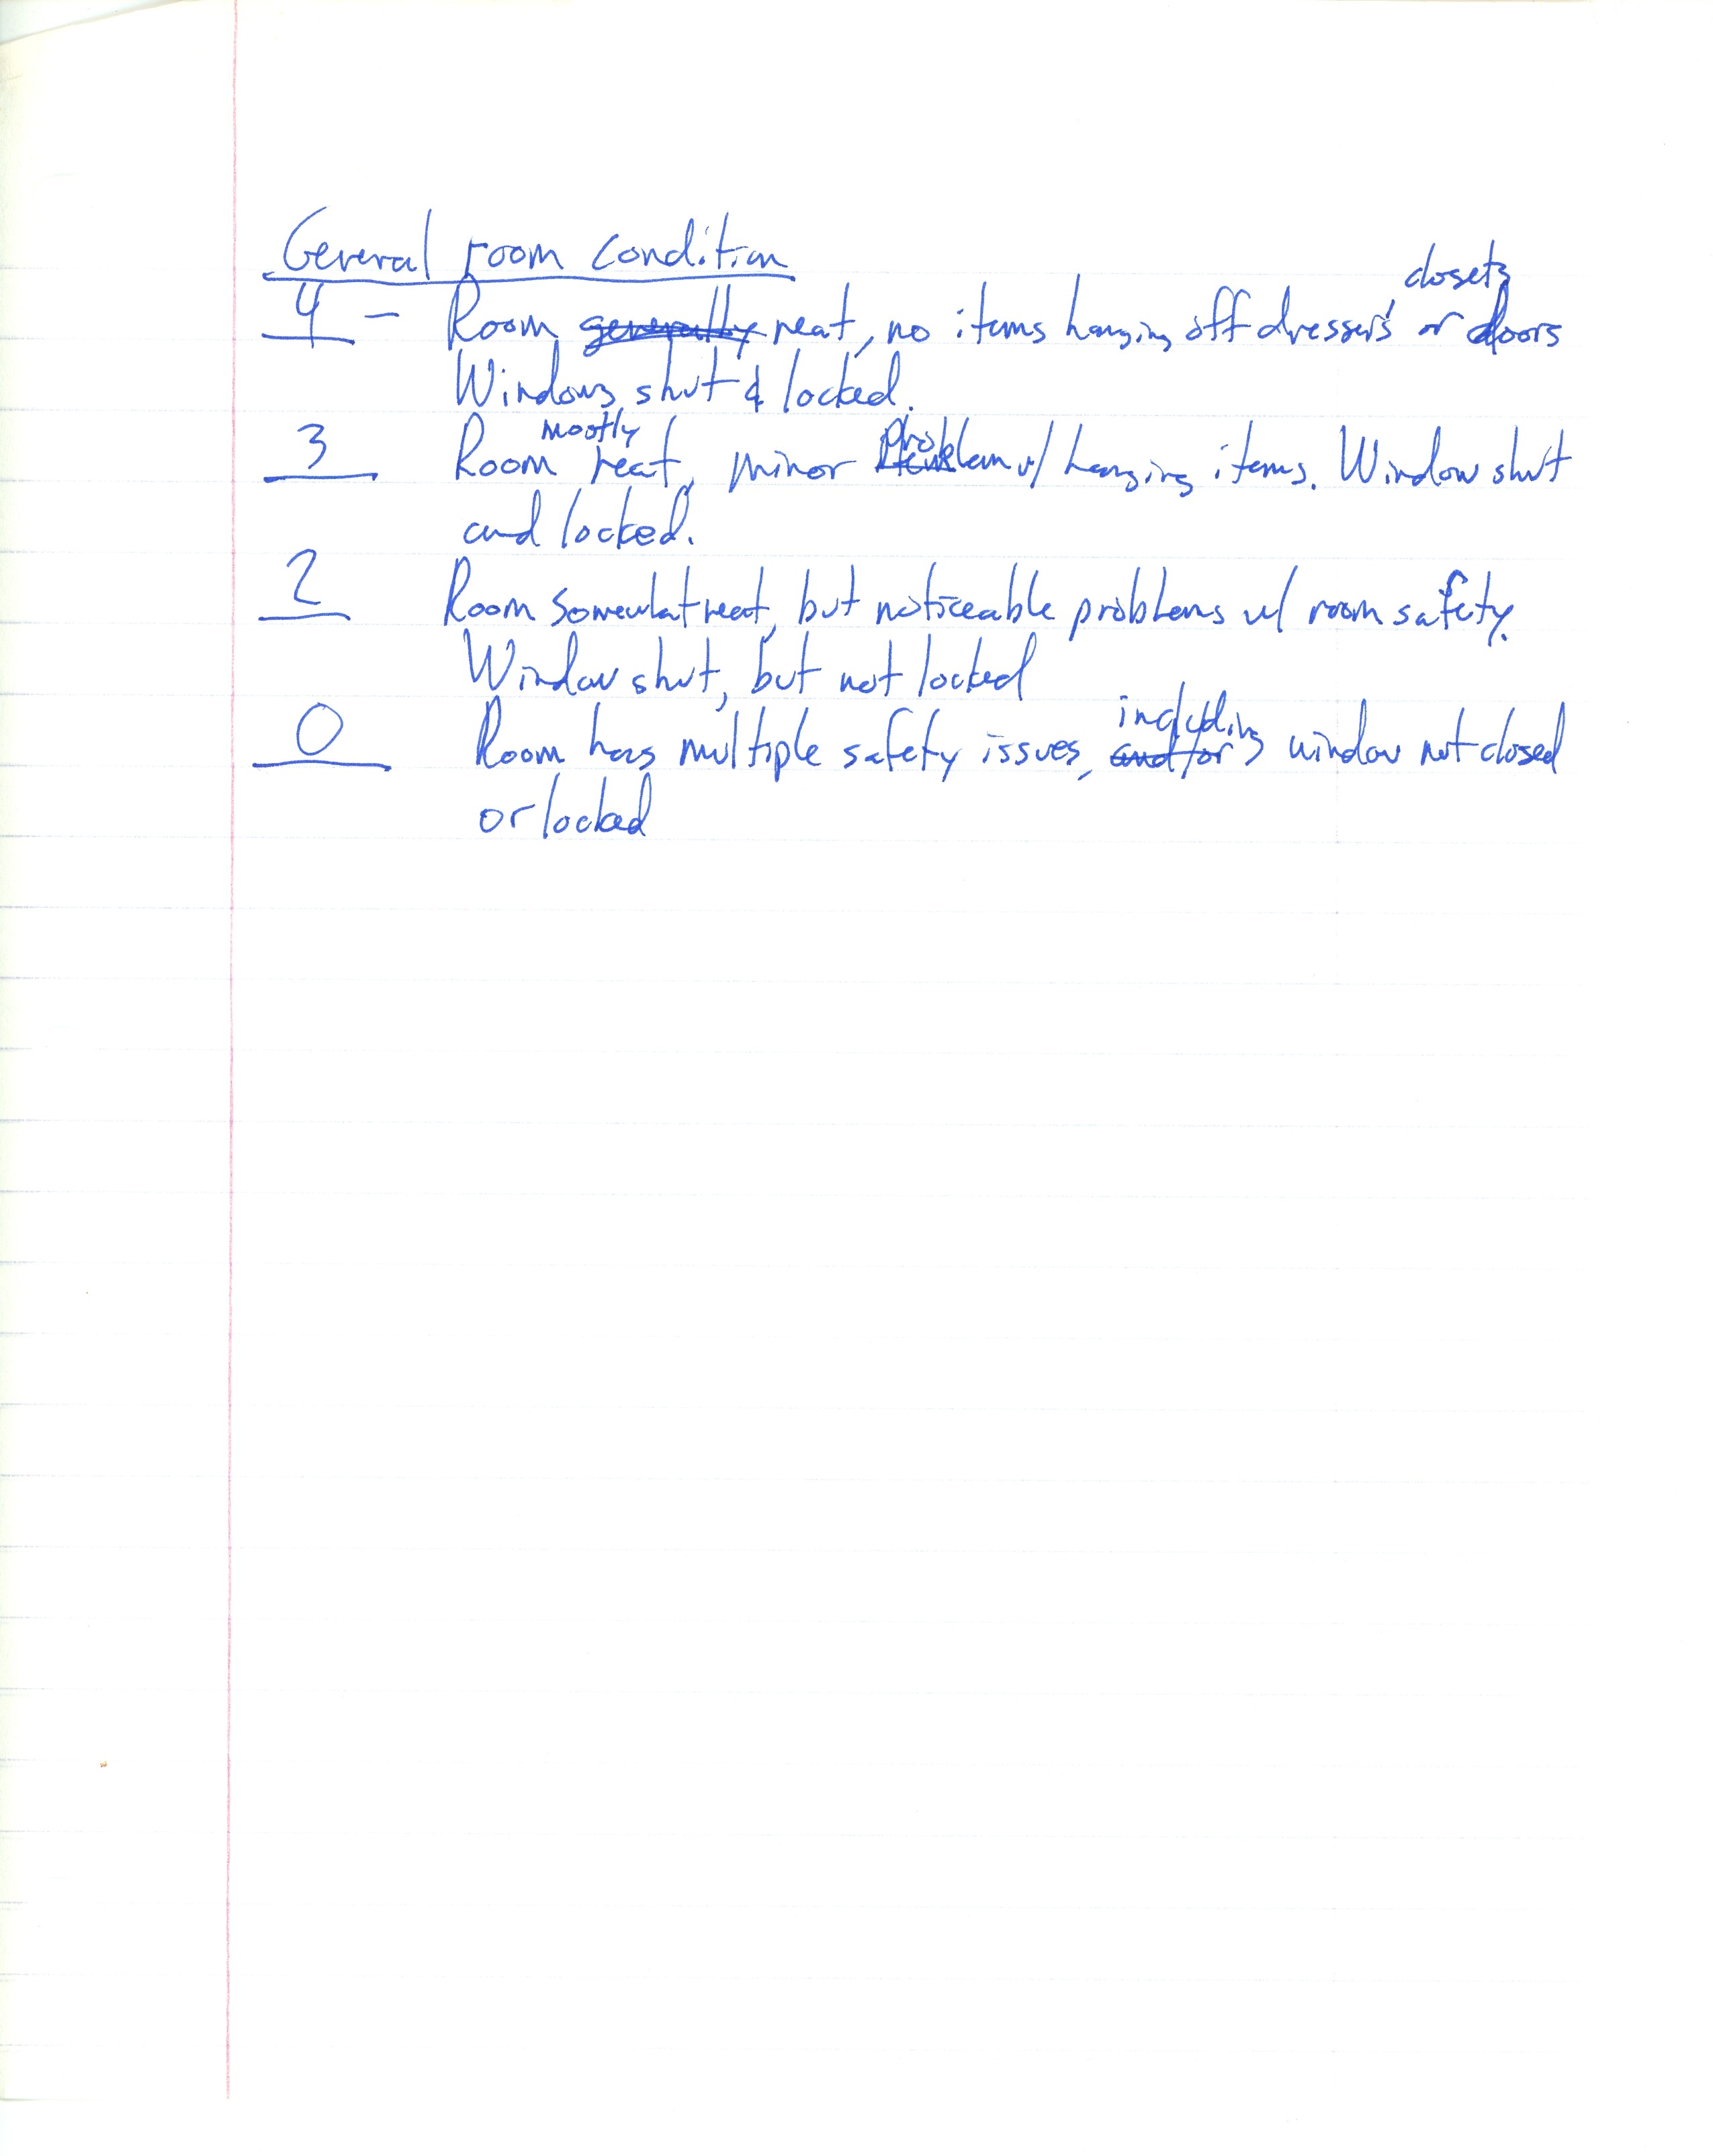 General room condition
closets
4 – Room generally neat, no items hanging off dressers, or doors
Windows shut & locked.
mostly
3 Room neat, minor problem w/ hanging items. Window shut
and locked.
2 Room somewhat neat, but noticeable problems w/ room safety.
Window shut, but not locked
including
0 Room has multiple safety issues, and/or window not closed
or locked